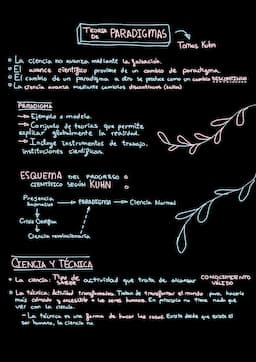 TEORÍA DE PARADIGMAS
Tomas Kuhn
La ciencia no avanza mediante la falsación.
El avance científico proviene de un cambio de paradigma.
El cambio de un paradigma a otro se produce como un cambio DISCONTINUO
La ciencia avanza mediante cambios discontinuos (saltos)
PARADIGMA
→ Ejemplo o modelo.
→ Conjunto de teorías que permite
explicar globalmente la realidad.
→ Incluye instrumentos de trabajo,
instituciones científicas.
ESQUEMA DEL PROGRESO
CIENTÍFICO SEGÚN KUHN
Presencia → PARADIGMA → Ciencia Normal
Crisis
Ciencia revolucionaria
CIENCIA Y TÉCNICA
La ciencia: Tipo de SABER actividad que trata de alcanzar CONOCIMIENTO VÁLIDO
La técnica: Actividad transformadora. Tratan de transformar el mundo para hacerlo
más cómodo y accesible a los seres humanos. En principio no tiene nada que
ver con la ciencia.
- La técnica es una forma de hacer las cosas. Existe desde que existe el
ser humano, la ciencia no.